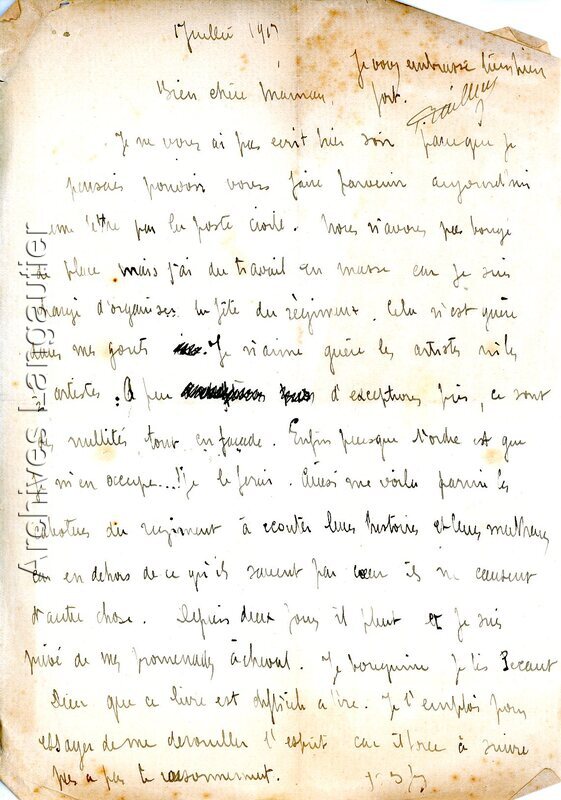 Juillet 1917
Je vous embrasse bien bien
fort.
Bien chère Maman,
Je ne vous ai pas ecrit hier soir parce que je
pensais pouvoir vous faire parvenir aujourd'hui
une lettre par la poste civile. Nous n'avons pas bougé
de place mais j'ai du travail en masse car je suis
chargé d'organiser la fête du régiment. Cela n'est guère
dans mes gouts. Je n'aime guère les artistes ni les
artistes. A peu d'exceptions près, ce sont
des nullités tout en façade. Enfin puisque l'ordre est que
je m'en occupe...! Je le ferais. Aussi me voila parmi les
cabotins du regiment à ecouter leurs histoires et leurs malheurs
car en dehors de ce qu'ils savent par cœur ils ne causent
d'autre chose. Depuis deux jours il pleut et je suis
privé de mes promenades à cheval. Je bouquine je lis
Dieu que ce livre est difficile a lire. Je l'emplois pour
essayer de me derouiller l'esprit car il force à suivre
pas a pas le raisonnement.
Archives J. Langautier